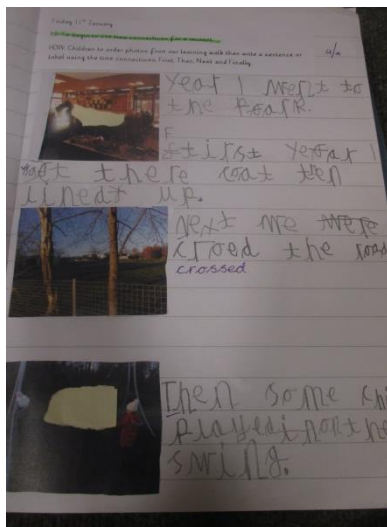 Friday 11th January
WOW: Children to order photos from our learning walk then write a sentence or
label using the time connectives First, Then, Next and Finally.
Year 1 went to
the Poark.
F
first Year 1
got there coat ten
lineat up.
Next we were
croed the road
crossed
Then some chi
played in on the
swing.